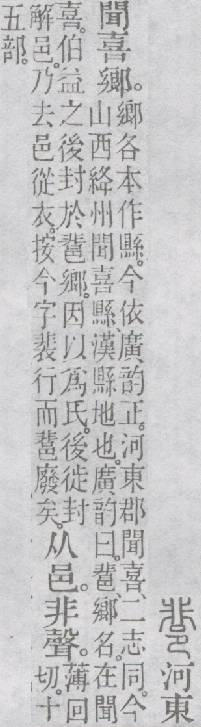 𨛬河東
聞喜鄉。鄉各本作縣。今依廣韵正。河東郡聞喜、二志同。今
山西絳州聞喜縣、漢縣地也。廣韵曰。𨛬、鄉名。在聞
喜。伯益之後封於𨛬鄉。因以爲氏。後徙封
解邑。乃去邑從衣。按今字裴行而𨛬廢矣。从邑。非聲。薄回切。十
五部。